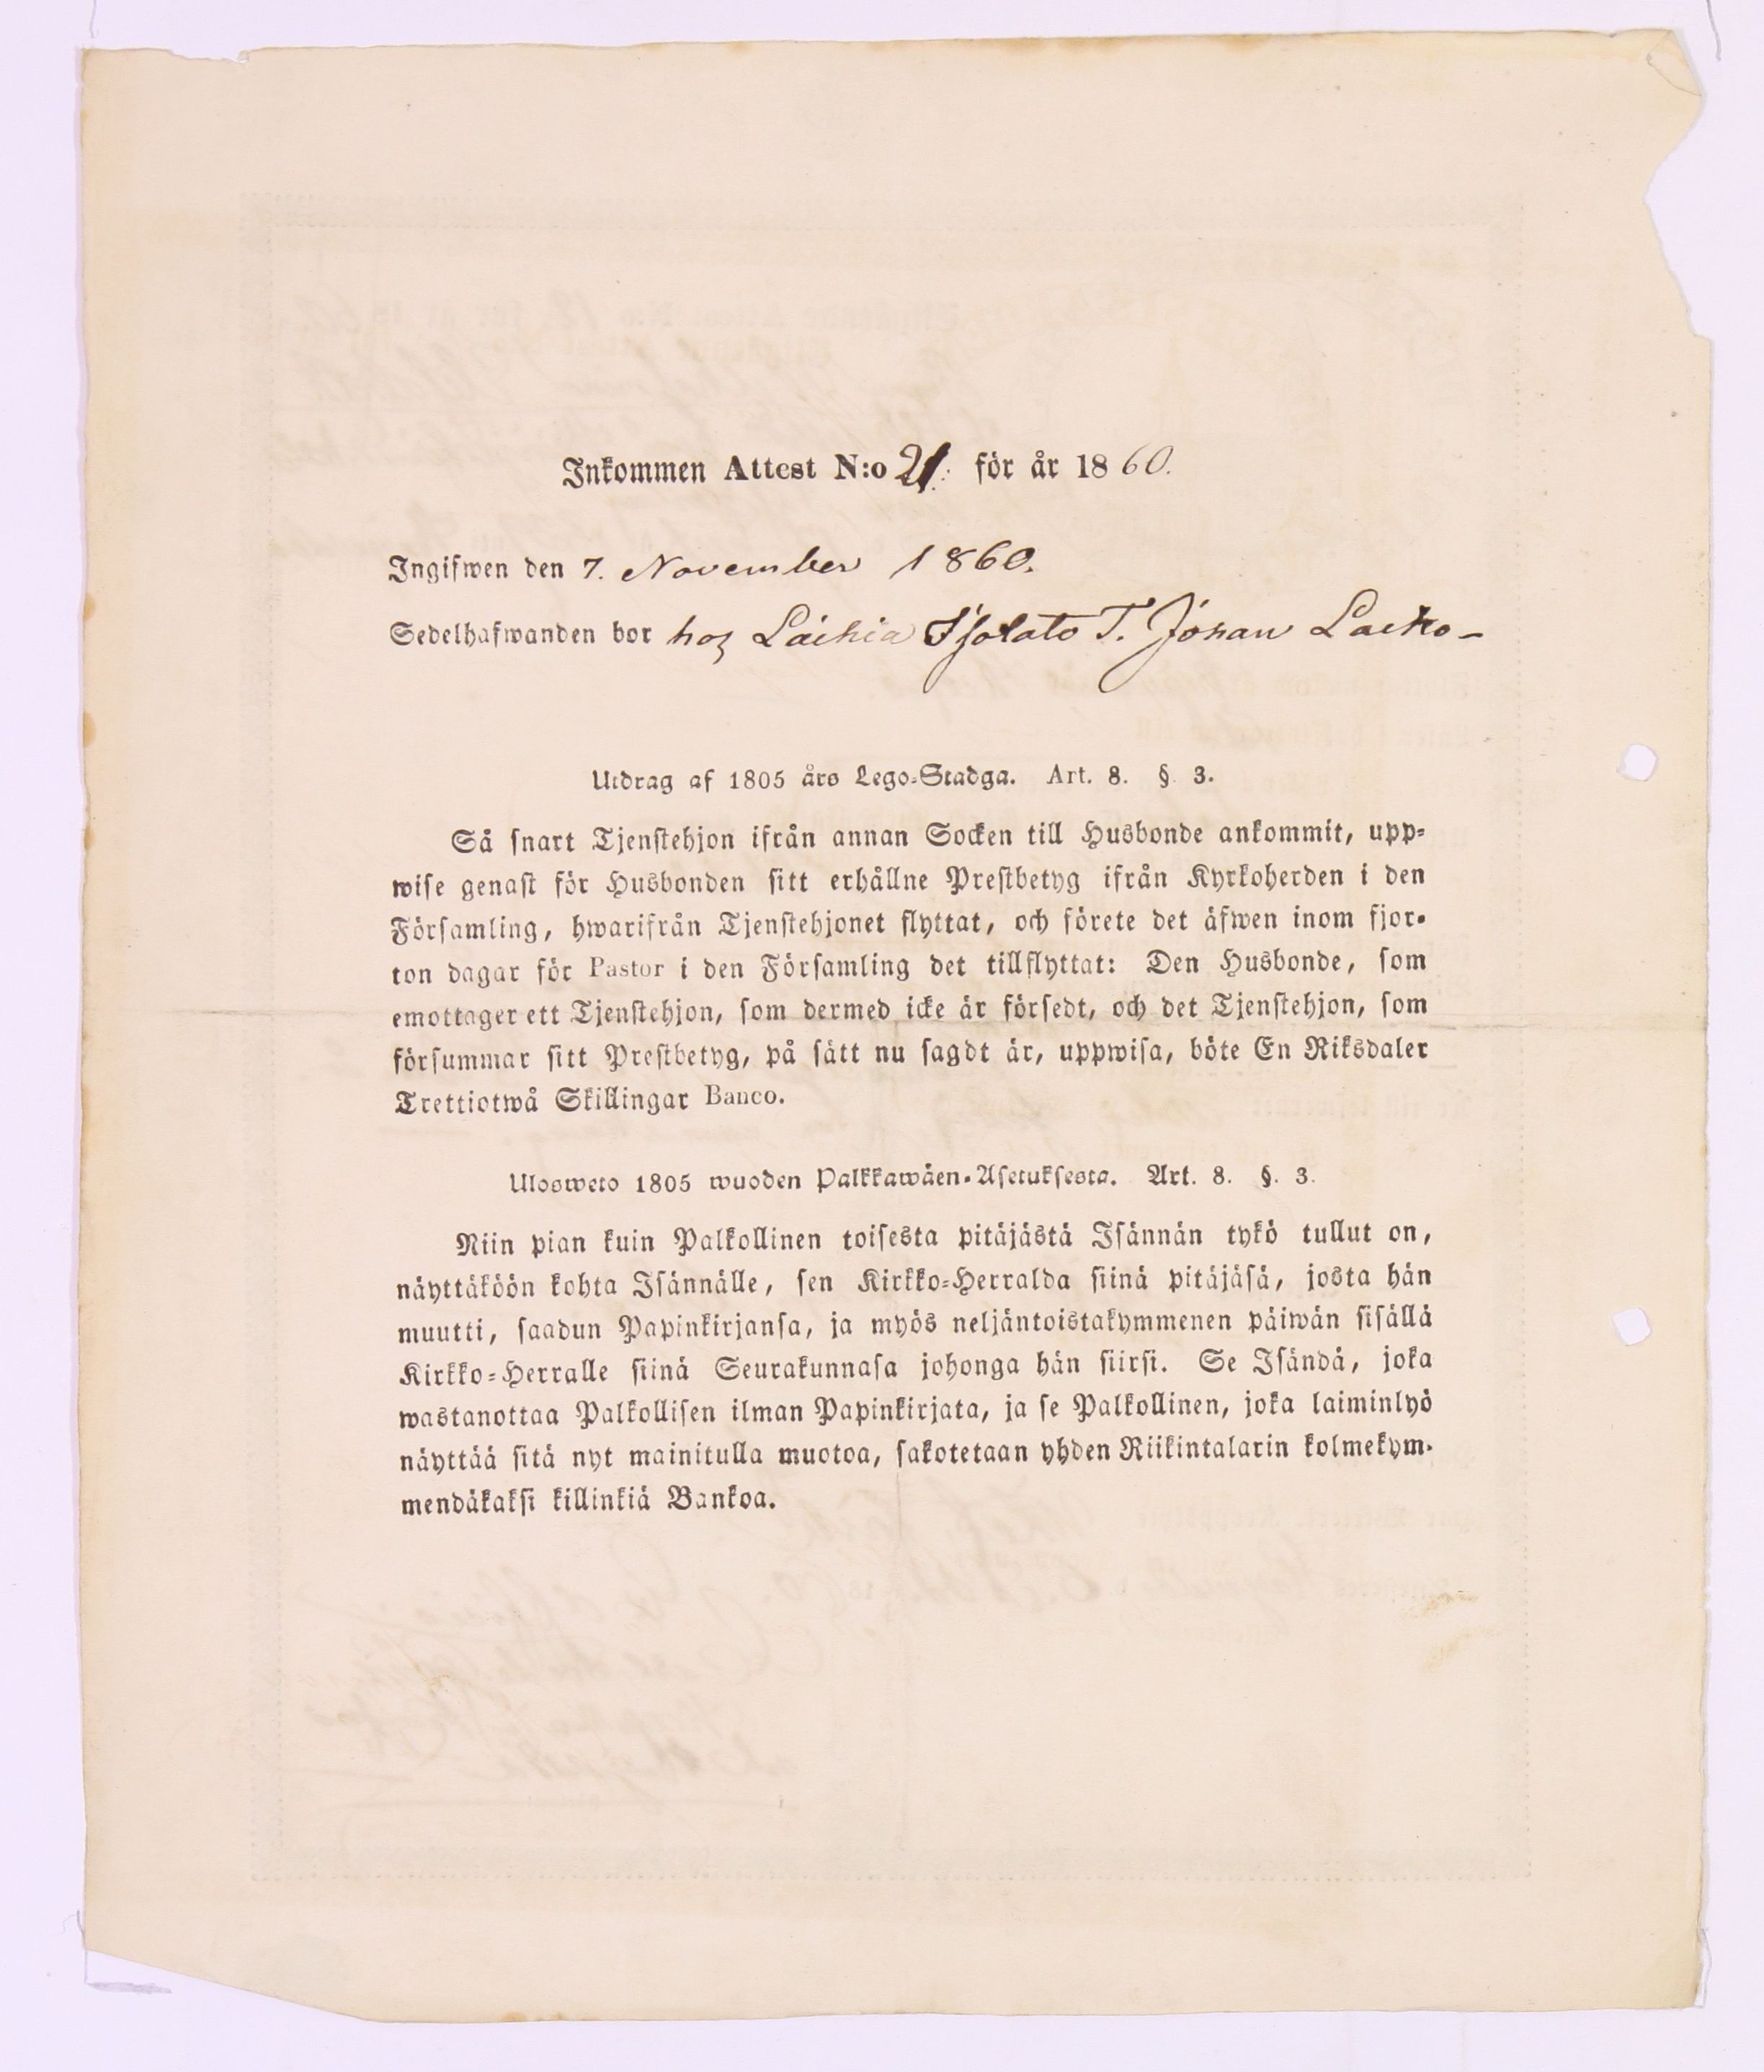 Inkommen Attest N:o 21. för år 1860.
Ingifwen den 7. November 1860.
Sedelhafwanden bor hos Laihia T. Johan
Utdrag af 1805 års Lego-Stadga. Art. 8. § 3.
Så snart Tjenstehjon ifrån annan Socken till Husbonde ankommit, upp-
wise genast för Husbonden sitt erhållne Prestbetyg ifrån Kyrkoherden i den
Församling, hwarifrån Tjenstehjonet flyttat, och förete det äfwen inom fjor-
ton dagar för Pastor i den Församling det tillflyttat: Den Husbonde, som
emottager ett Tjenstehjon, som dermed icke är försedt, och det Tjenstehjon, som
försummar sitt Prestbetyg, på sätt nu sagdt är, uppwisa, böte En Riksdaler
Trettiotwå Skillingar Banco.
Ulosweto 1805 wuoden Palkkawäen-Asetuksesta. Art. 8. §. 3.
Niin pian kuin Palkollinen toisesta pitäjästä Isännän tykö tullut on,
näyttäköön kohta Isännälle, sen Kirkko-Herralda siinä pitäjäsä, josta hän
muutti, saadun Papinkirjansa, ja myös neljäntoistakymmenen päiwän sisällä
Kirkko-Herralle siinä Seurakunnasa johonga hän siirsi. Se Isändä, joka
wastanottaa Palkollisen ilman Papinkirjata, ja se Palkollinen, joka laiminlyö
näyttää sitä nyt mainitulla muotoa, sakotetaan yhden Riikintalarin kolmekym-
mendäkaksi killinkiä Bankoa.